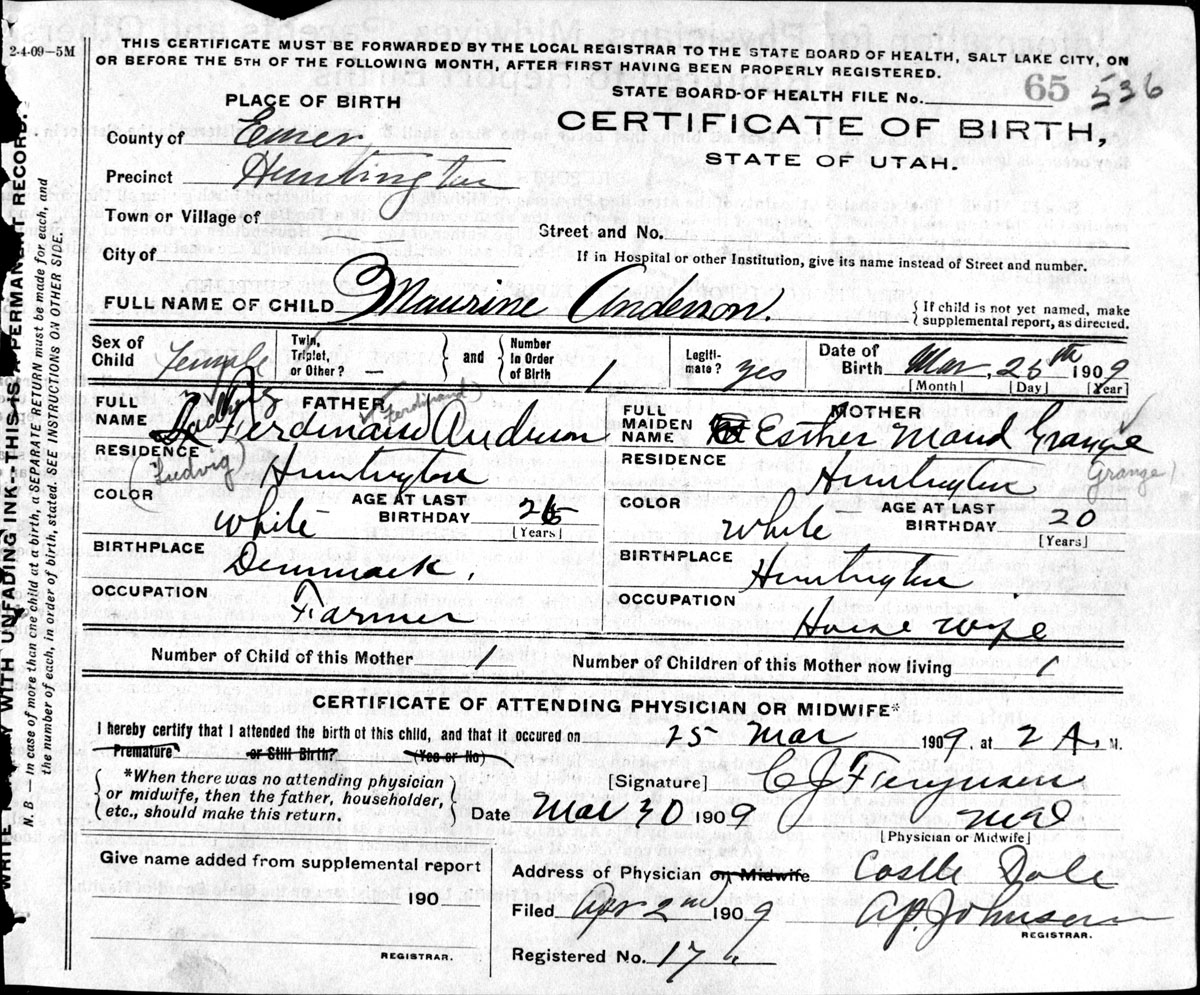 2-4-09—5M
THIS CERTIFICATE MUST BE FORWARDED BY THE LOCAL REGISTRAR TO THE STATE BOARD OF HEALTH, SALT LAKE CITY, ON
OR BEFORE THE 5TH OF THE FOLLOWING MONTH, AFTER FIRST HAVING BEEN PROPERLY REGISTERED.
STATE BOARD OF HEALTH FILE No. 65 536
PLACE OF BIRTH
CERTIFICATE OF BIRTH,
STATE OF UTAH.
County of Emery
Precinct Huntington
Town or Village of
Street and No.
City of
If in Hospital or other Institution, give its name instead of Street and number.
FULL NAME OF CHILD Maurine Anderson.
{ If child is not yet named, make
supplemental report, as directed.
Sex of Child Female
Twin, Triplet, or Other? —
and
Number in Order of Birth 1
Legitimate? yes
Date of Birth Mar, 25th 1909
[Month] [Day] [Year]
FATHER
FULL NAME Ferdinand Anderson
(Ludvig) Ferdinand
RESIDENCE Huntington
COLOR White
AGE AT LAST BIRTHDAY 26
[Years]
BIRTHPLACE Denmark.
OCCUPATION Farmer
MOTHER
FULL MAIDEN NAME Esther Maud Grange
(Grange)
RESIDENCE Huntington
COLOR White
AGE AT LAST BIRTHDAY 20
[Years]
BIRTHPLACE Huntington
OCCUPATION House wife
Number of Child of this Mother 1 Number of Children of this Mother now living 1
CERTIFICATE OF ATTENDING PHYSICIAN OR MIDWIFE*
I hereby certify that I attended the birth of this child, and that it occured on 25 Mar 1909, at 2 A. M.
Premature or Still Birth? (Yes or No)
{ *When there was no attending physician
or midwife, then the father, householder,
etc., should make this return. }
[Signature] C J Ferguson
Date Mar 30 1909
[Physician or Midwife]
Give name added from supplemental report
190
REGISTRAR.
Address of Physician or Midwife Castle Dale
Filed Apr 2nd 1909 A.P. Johnson
REGISTRAR.
Registered No. 17
WITH UNFADING INK---THIS IS A PERMANENT RECORD.
N. B. — In case of more than one child at a birth, a SEPARATE RETURN must be made for each, and
the number of each, in order of birth, stated. SEE INSTRUCTIONS ON OTHER SIDE.